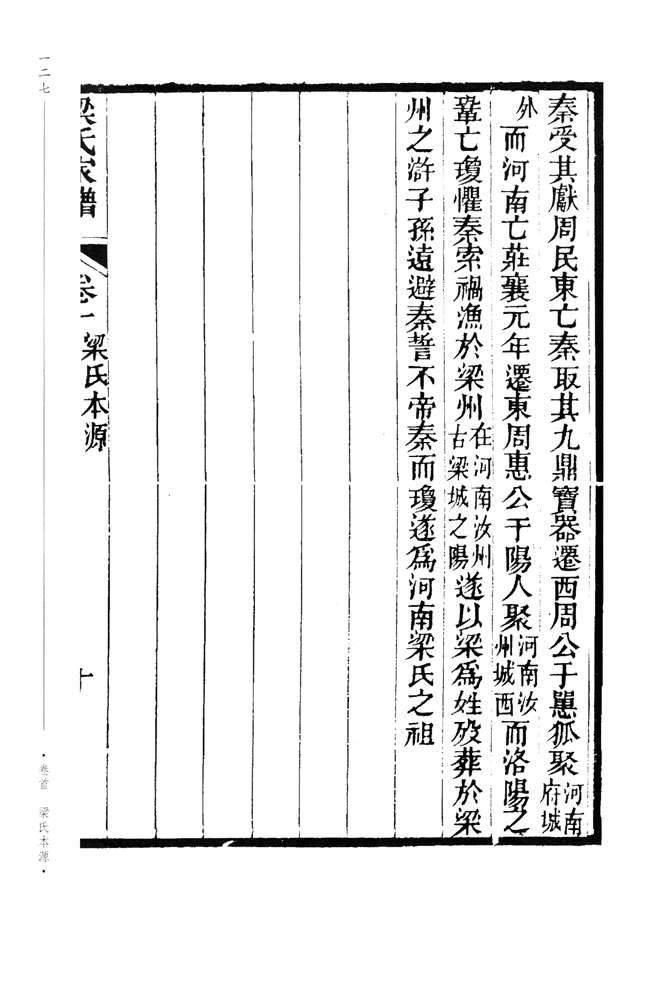 秦受其獻周民東亡秦取其九鼎寶器遷西周公于㒹狐聚河南府城
外而河南亡莊襄元年遷東周惠公于陽人聚河南汝州城西而洛陽之
鞏亡瓊懼秦索禍漁於梁州在河南汝州古梁城之陽遂以梁爲姓歿葬於梁
州之滸子孫遠避秦誓不帝秦而瓊遂爲河南梁氏之祖
梁氏家譜 卷一 梁氏本源 十
一二七
·卷首 梁氏本源·